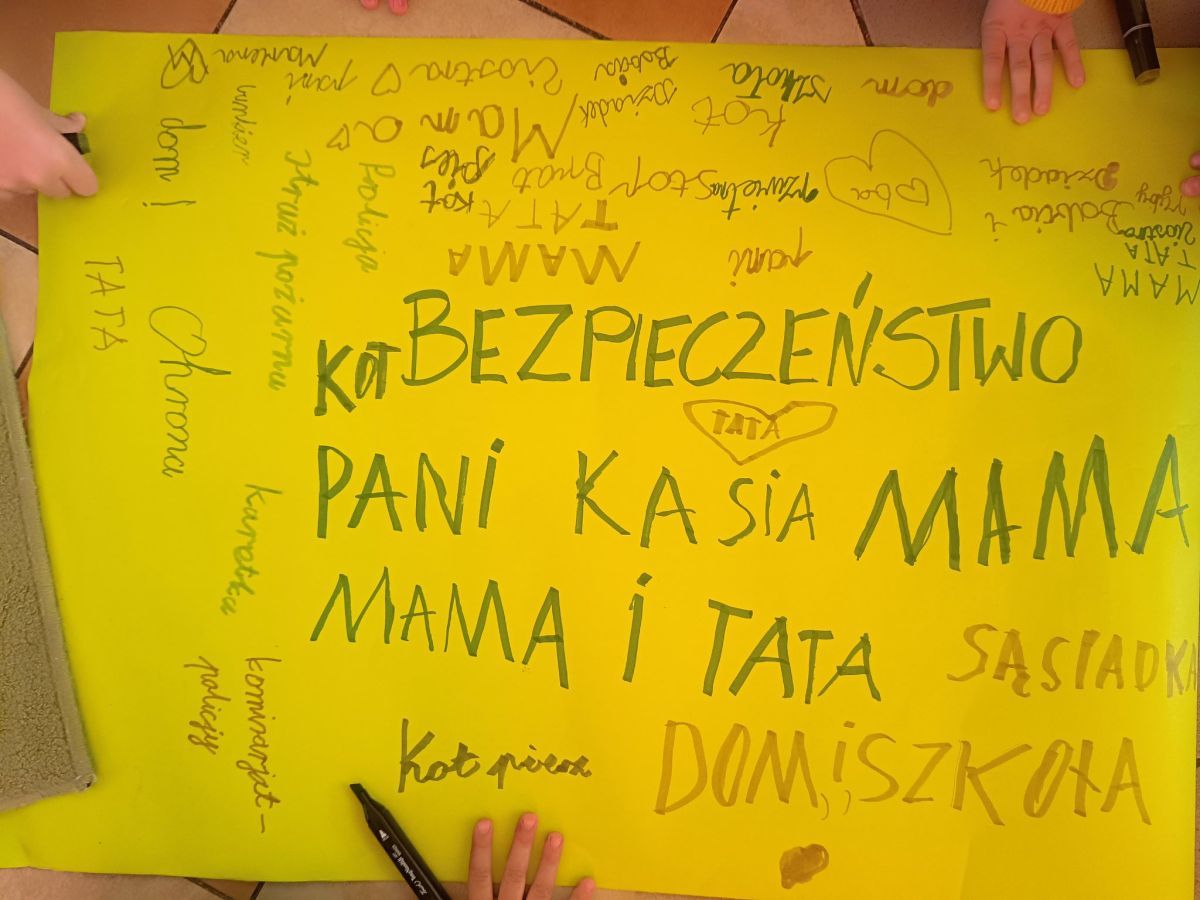 BEZPIECZEŃSTWO
KOT
TATA
PANI KASIA MAMA
MAMA I TATA
SĄSIADKA
Kot piesz
DOM, i SZKOŁA
pani Marlena
Siostra
Babcia
Dziadek
szkoła
dom
kot
Mam
pies
Brat
STOP
kot
TATA
MAMA
pani
Dziadek
Babcia i
ryby
siostra
TATA
MAMA
Policja
straż pożarna
dom!
TATA
Ochrona
karetka
komisarjat-
policjy